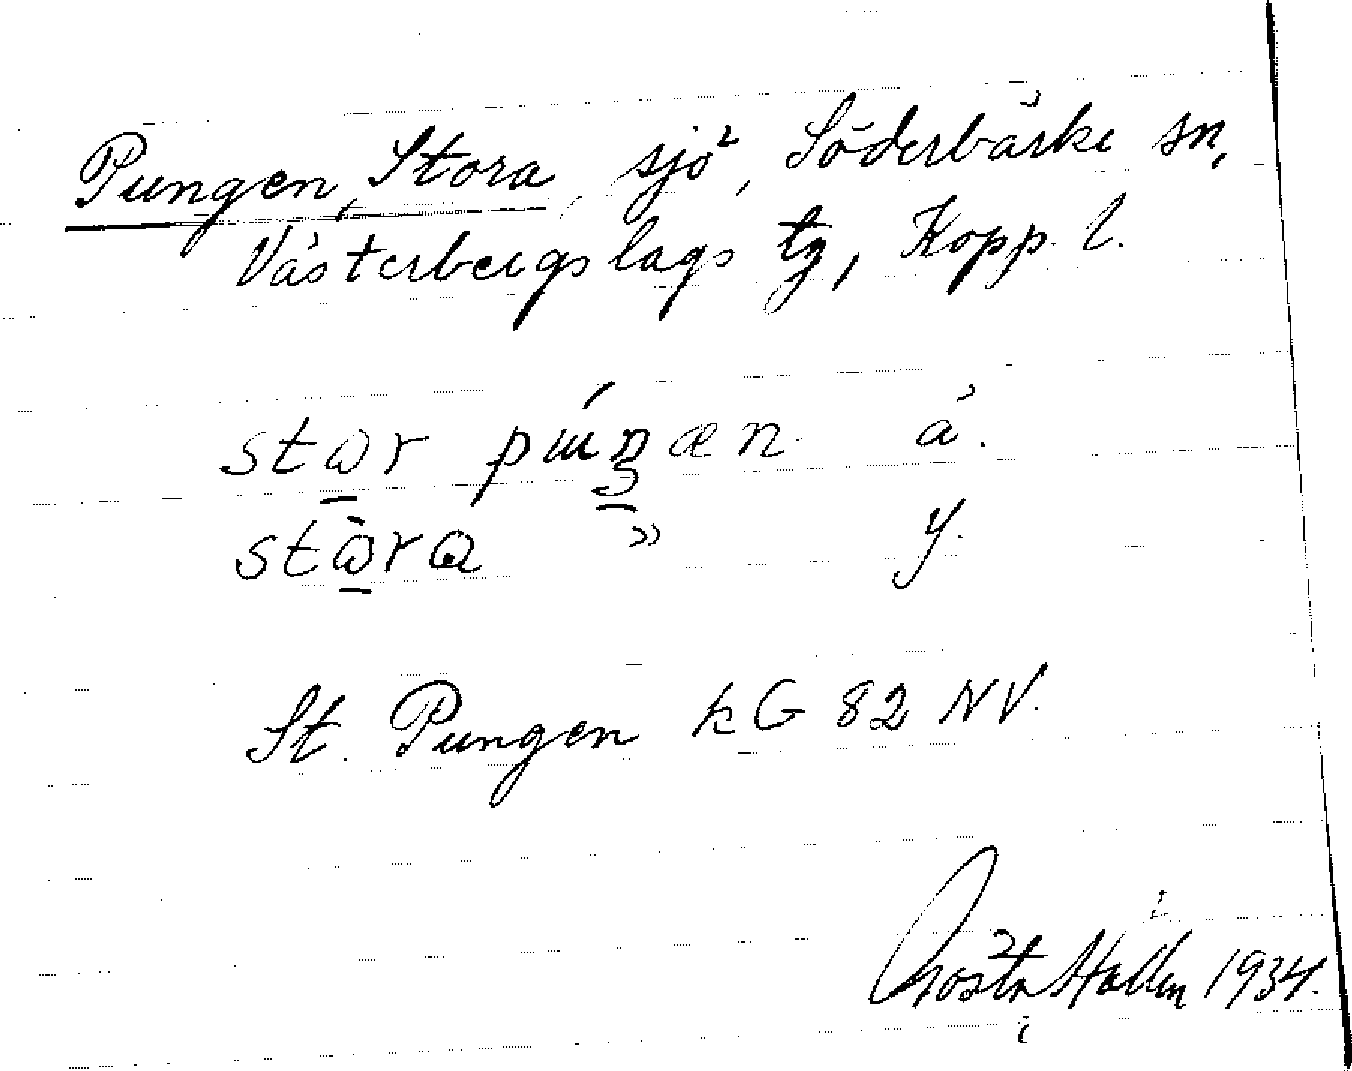 Pungen, Stora, sjö, Söderbärke sn,
Västerbergslags tg, Kopp. l.
ä.
» y.
St. Pungen kG 82 NV.
Gösta Hallin 1934.